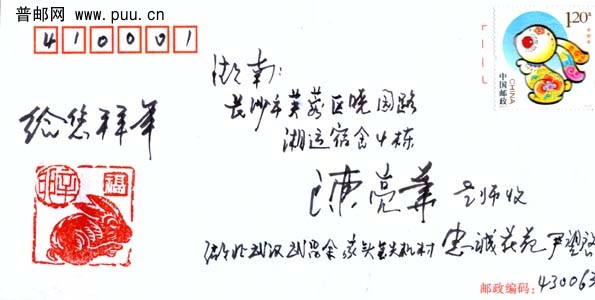 普邮网
www.puu.cn
410001
1.20元
中国邮政
CHINA
湖南:
长沙市芙蓉区晓园路
湘运宿舍4栋
给您拜年
陈亮华 老师收
福
湖北武汉武昌余家头 忠诚花苑 尹望
邮政编码:430063